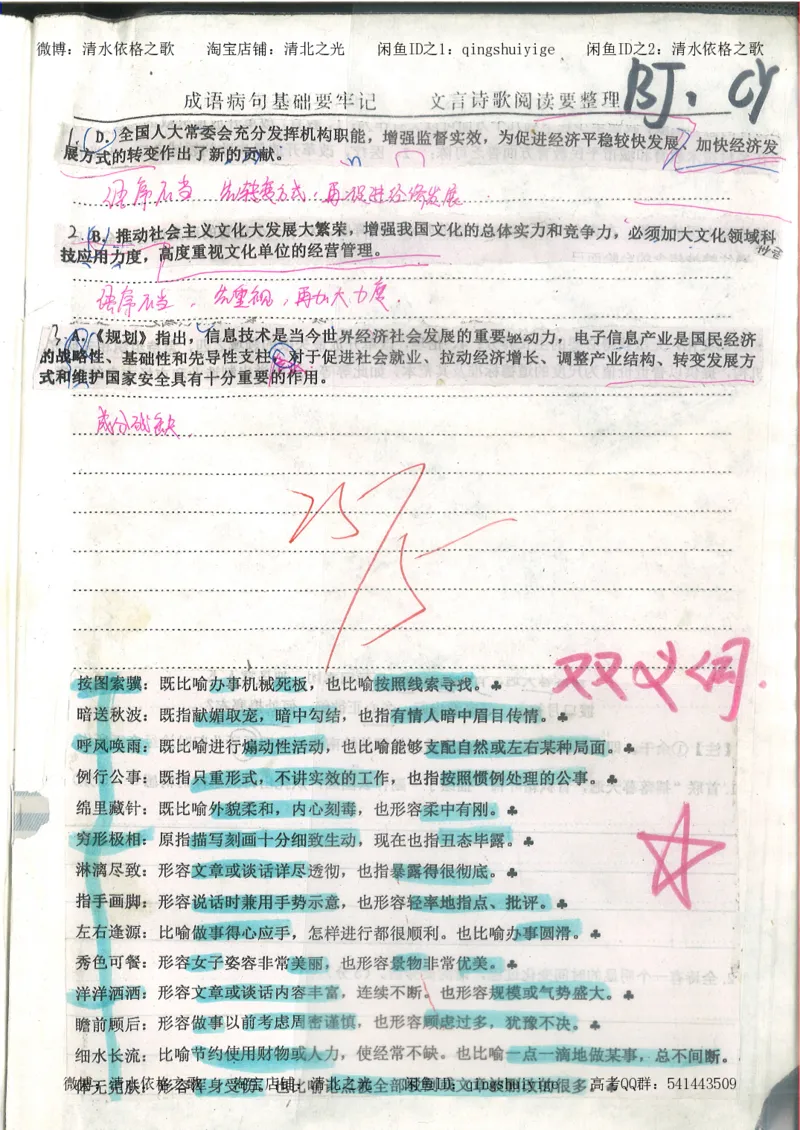 微博：清水依格之歌 淘宝店铺：清北之光 闲鱼ID之1：qingshuiyige 闲鱼ID之2：清水依格之歌
成语病句基础要牢记 文言诗歌阅读要整理
BJ、CY
1.(D.全国人大常委会充分发挥机构职能，增强监督实效，为促进经济平稳较快发展、加快经济发
展方式的转变作出了新的贡献。
语序不当 先转变方式，再促进经济发展
2.B.推动社会主义文化大发展大繁荣，增强我国文化的总体实力和竞争力，必须加大文化领域科
技应用力度，高度重视文化单位的经营管理。
语序不当，先重视，再加大力度.
3.A.《规划》指出，信息技术是当今世界经济社会发展的重要驱动力，电子信息产业是国民经济
的战略性、基础性和先导性支柱，对于促进社会就业、拉动经济增长、调整产业结构、转变发展方
式和维护国家安全具有十分重要的作用。
成分残缺
25/5
双义词.
按图索骥：既比喻办事机械死板，也比喻按照线索寻找。♣
暗送秋波：既指献媚取宠，暗中勾结，也指有情人暗中眉目传情。♣
呼风唤雨：既比喻进行煽动性活动，也比喻能够支配自然或左右某种局面。♣
例行公事：既指只重形式，不讲实效的工作，也指按照惯例处理的公事。♣
绵里藏针：既比喻外貌柔和，内心刻毒，也形容柔中有刚。♣
穷形极相：原指描写刻画十分细致生动，现在也指丑态毕露。♣
淋漓尽致：形容文章或谈话详尽透彻，也指暴露得很彻底。♣
指手画脚：形容说话时兼用手势示意，也形容轻率地指点、批评。♣
左右逢源：比喻做事得心应手，怎样进行都很顺利。也比喻办事圆滑。♣
秀色可餐：形容女子姿容非常美丽，也形容景物非常优美。♣
洋洋洒洒：形容文章或谈话内容丰富，连续不断。也形容规模或气势盛大。♣
瞻前顾后：形容做事以前考虑周密谨慎，也形容顾虑过多，犹豫不决。♣
细水长流：比喻节约使用财物或人力，使经常不缺。也比喻一点一滴地做某事，总不间断。
体无完肤：形容浑身受伤。也比喻论点被全部驳倒或文章被删改的很多。♣
微博：清水依格之歌 淘宝店铺：清北之光 闲鱼ID：qingshuiyige 高考QQ群：541443509